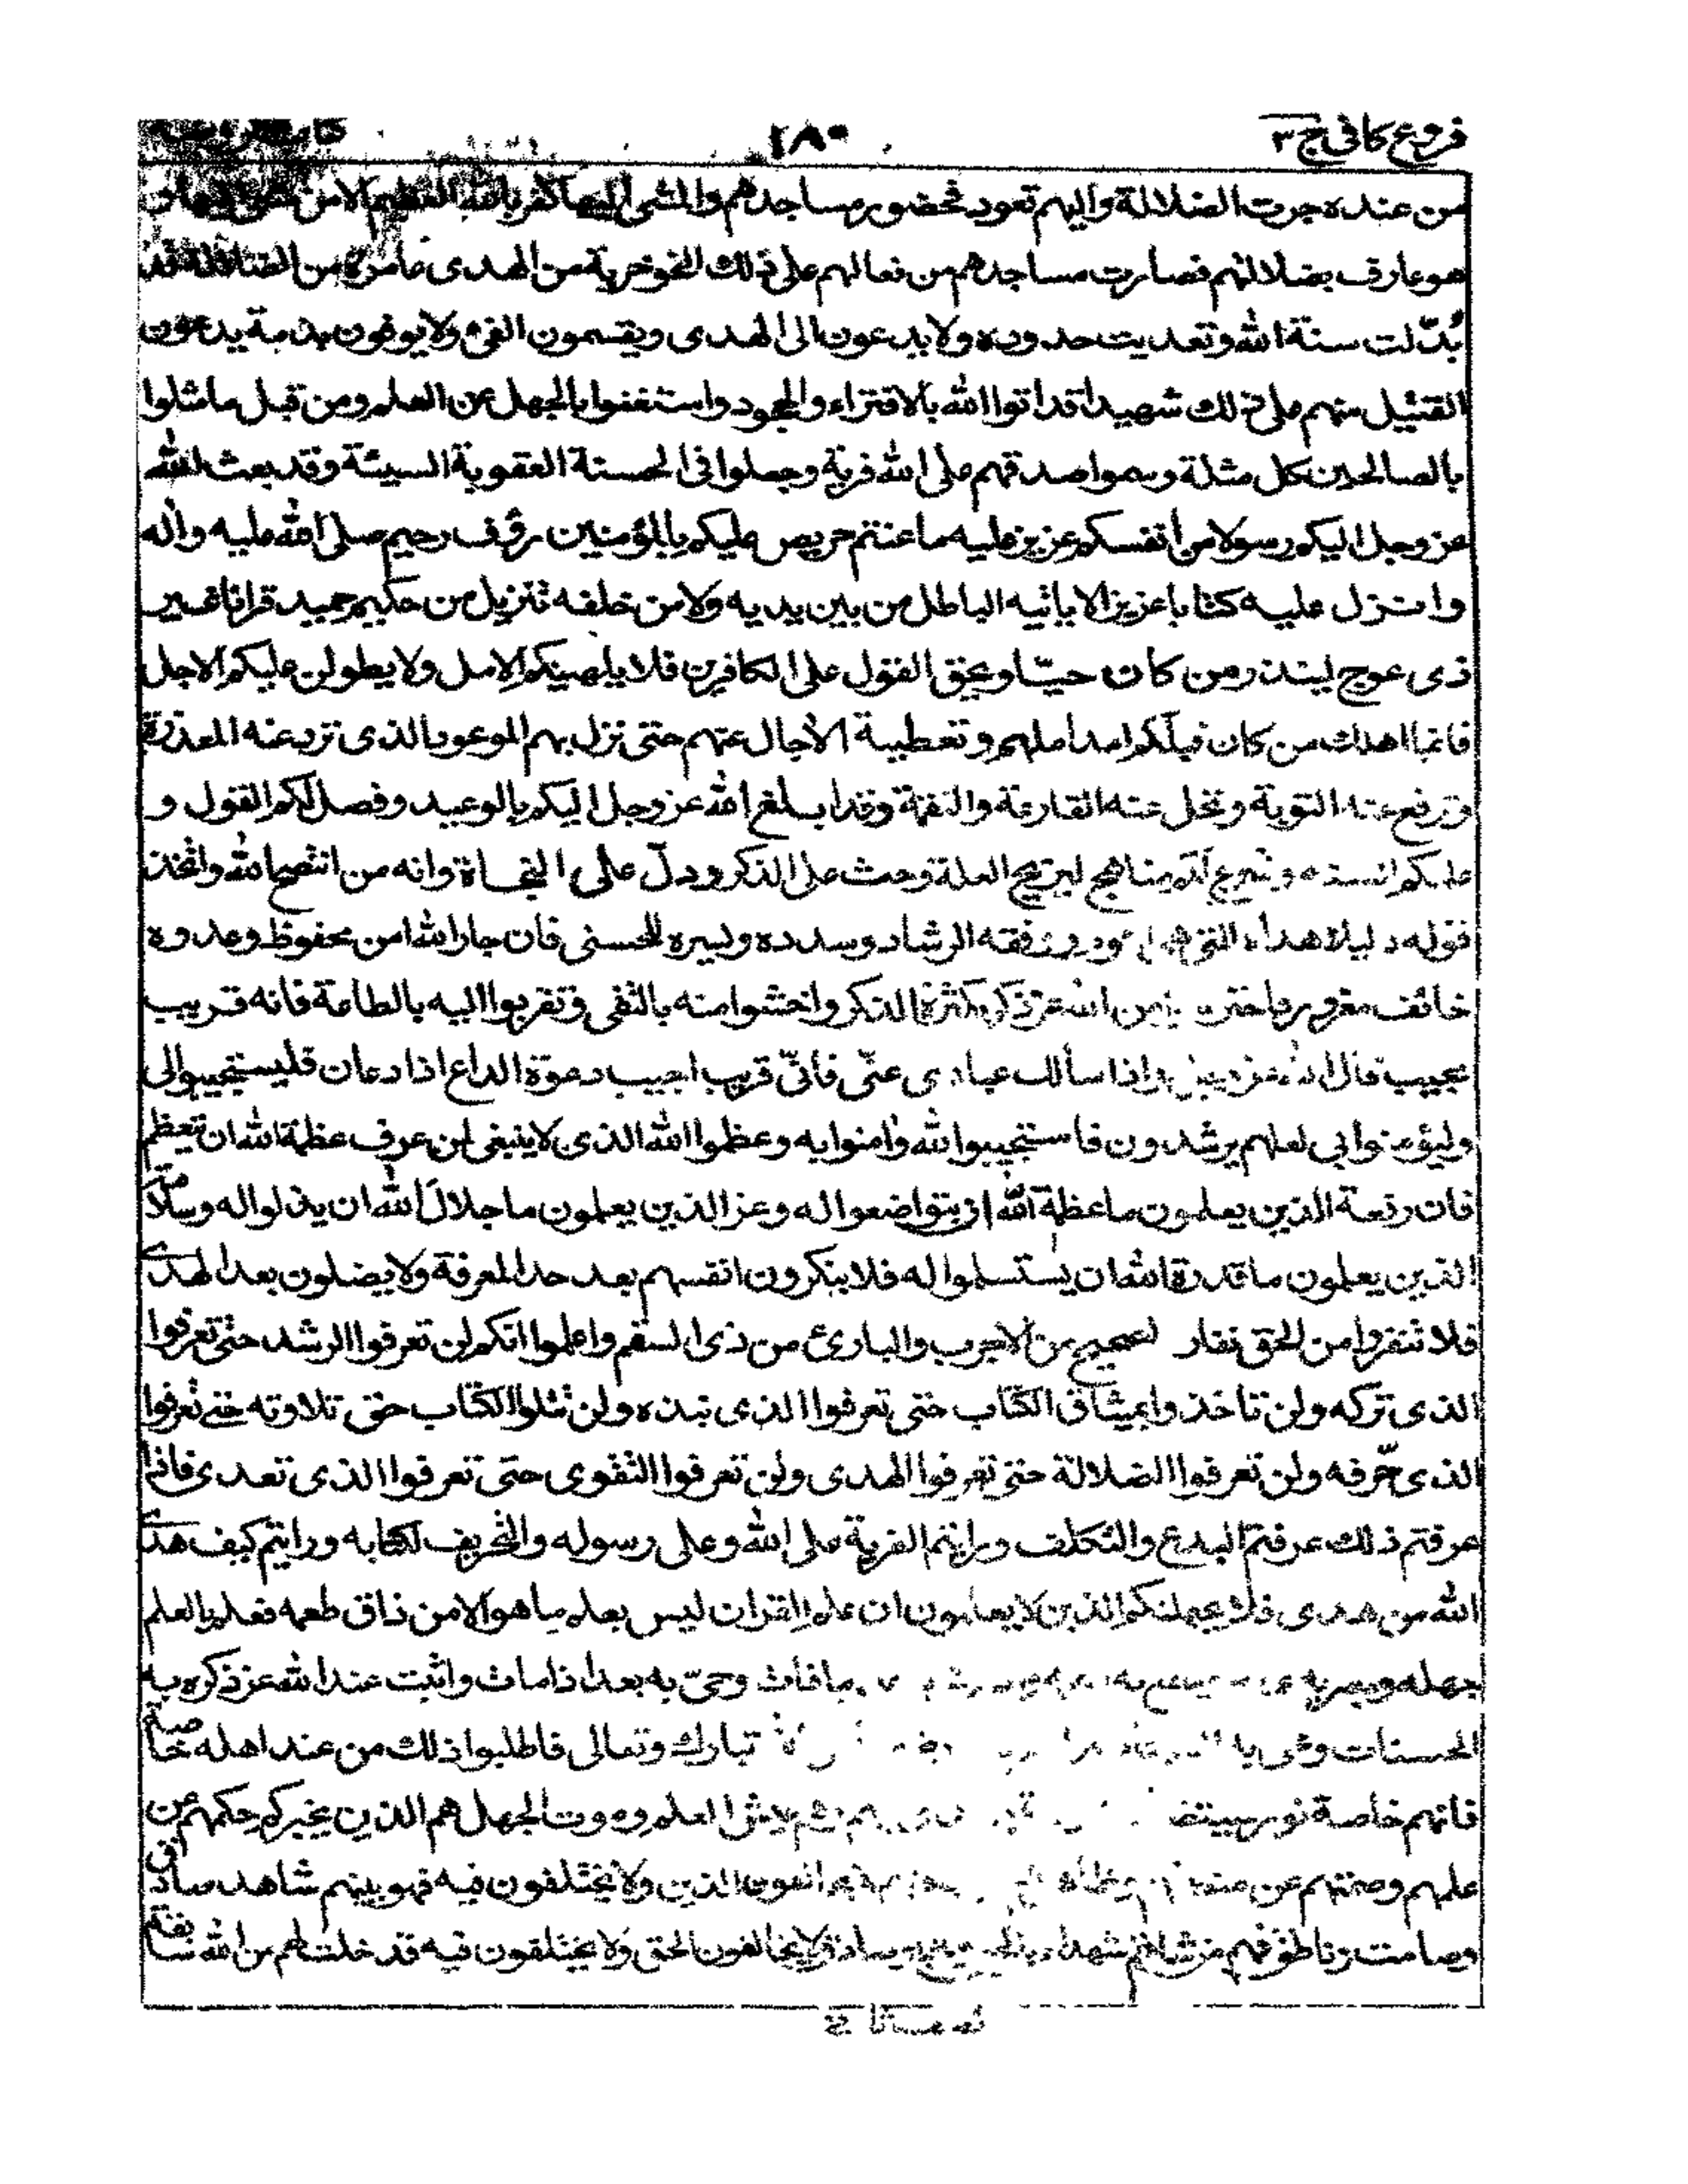 فروع كافى ج ٣
١٨٠
من عنده جرت الضلالة واليهم تعود فحضور مساجدهم والمشى اليها كفر بالله العظيم الا من
هو عارف بضلالتهم فصارت مساجدهم من فعالهم على ذلك النحو خربة من الهدى عامرة من الضلالة قد
بُدّلت سنة الله وتعديت حدوده ولا يدعون الى الهدى ويقسمون الفئ ولا يوفون بذمة يدعون
القتيل منهم على ذلك شهيدا قد اتوا الله بالافتراء والجحود واستغنوا بالجهل عن العلم ومن قبل ما مثلوا
بالصالحين كل مثلة وسموا صدقهم على الله فرية وجعلوا فى الحسنة العقوبة السيئة وقد بعث الله
عز وجل اليكم رسولا من أنفسكم عزيز عليه ما عنتم حريص عليكم بالمؤمنين رؤف رحيم صلى الله عليه وأله
وانزل عليه كتابا عزيزا لا ياتيه الباطل من بين يديه ولا من خلفه تنزيل من حكيم حميد قرانا غير
ذى عوج لينذر من كان حيّا ويحق القول على الكافرين فلا يلهينكم الامل ولا يطولن عليكم الاجل
فانما اهلك من كان قبلكم امد املهم وتغطية الأجال عنهم حتى نزل بهم الموعود الذى ترد عنه المعذرة
وترفع عنه التوبة وتحل عنه القارعة والنقمة وقد ابلغ الله عز وجل اليكم بالوعيد وفصل لكم القول و
علمكم السنة وشرع لكم المناهج ليزيح العلة وحث على الذكر ودلّ على النجاة وانه من انتصح الله واتخذ
قوله دليلا هداه للتى هى اقوم ووفقه الرشاد وسدده ويسره للحسنى فان جار الله امن محفوظ وعدوه
خائف مغرور فاحترسوا من الله عز ذكره بكثرة الذكر واخشوا منه بالتقى وتقربوا اليه بالطاعة فانه قريب
مجيب قال الله عز وجل واذا سألك عبادى عنّى فانّى قريب اجيب دعوة الداع اذا دعان فليستجيبوا لى
وليؤمنوا بى لعلهم يرشدون فاستجيبوا لله وامنوا به وعظموا الله الذى لا ينبغى لمن عرف عظمة الله ان يتعظم
فان رفعة الذين يعلمون ما عظمة الله ان يتواضعوا له وعز الذين يعلمون ما جلال الله ان يذلوا له وسلامة
الذين يعلمون ما قدرة الله ان يستسلموا له فلا ينكرون انفسهم بعد حد المعرفة ولا يضلون بعد الهدى
فلا تنفروا من الحق نفار الصحيح من الاجرب والبارئ من ذى السقم واعلموا انكم لن تعرفوا الرشد حتى تعرفوا
الذى تركه ولن تاخذوا بميثاق الكتاب حتى تعرفوا الذى نبذه ولن تتلوا الكتاب حق تلاوته حتى تعرفوا
الذى حرّفه ولن تعرفوا الضلالة حتى تعرفوا الهدى ولن تعرفوا التقوى حتى تعرفوا الذى تعدى فاذا
عرفتم ذلك عرفتم البدع والتكلف ورايتم الفرية على الله وعلى رسوله والتحريف لكتابه ورايتم كيف هدى
الله من هدى فلا يجهلنكم الذين لا يعلمون ان علم القران ليس يعلم ما هو الا من ذاق طعمه فعلم بالعلم
جهله وبصر به ما فات وحيّ به بعد اذ مات واثبت عند الله عز ذكره به
الحسنات ومحى به تبارك وتعالى فاطلبوا ذلك من عند اهله خاصة
فانهم خاصة نور يستضاء العلم وموت الجهل هم الذين يخبركم حكمهم عن
علمهم وصمتهم عن منطقهم وظاهرهم لا يخالفون الدين ولا يختلفون فيه فهو بينهم شاهد صادق
وصامت ناطق فهم من شانهم شهداء بالحق ومخبر صادق لا يخالفون الحق ولا يختلفون فيه قد خلت لهم من الله سابقة